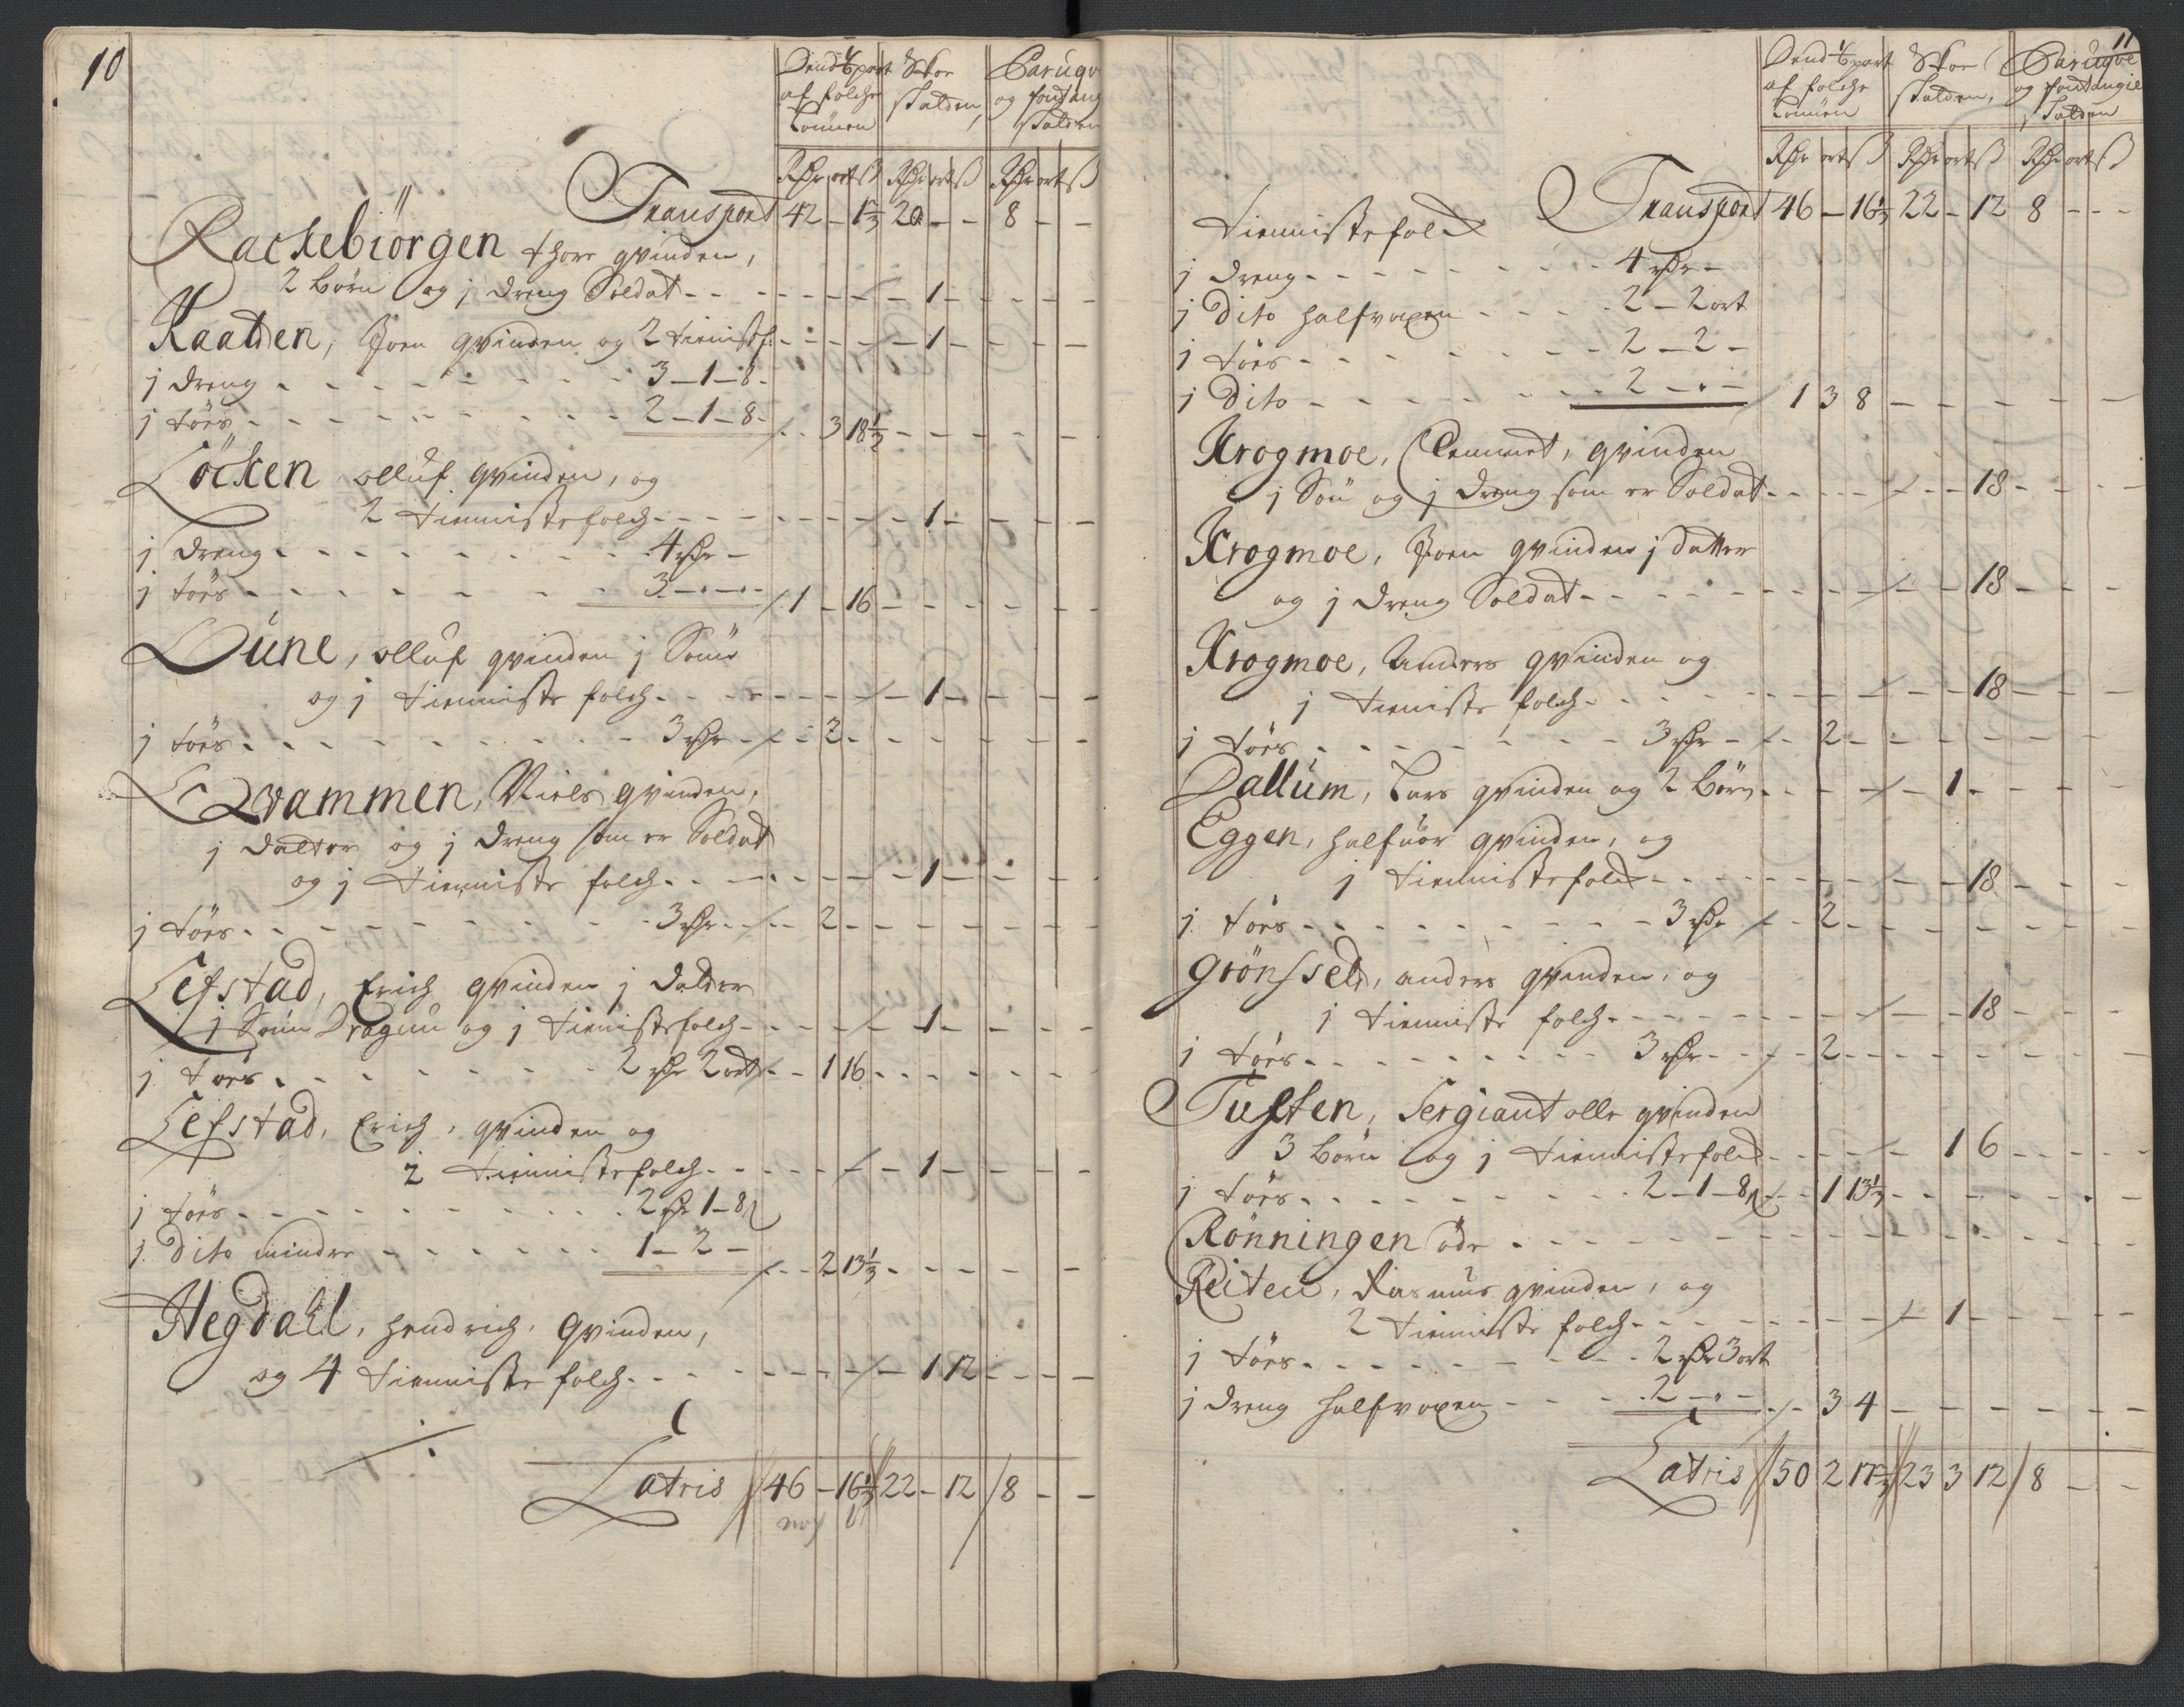 10
Dend 1/6 part af folche Lønnen
Skoe skatden,
Paruqv og fontang skatden
Rdr ort ß Rdr ort ß Rdr ort ß
Transport 42 - 1 2/3 20 - - 8 - -
Rackebiörgen thore qvinden,
2 börn og j dreng Soldat - - - 1 - - - -
Kaatden, Joen qvinden og 2 tienistf. - - 1 - - - -
j dreng - - - 3 - 1 - 8 -
j töes - - - 2 - 1 - 8 - 3 18 1/2 - - - - -
Löcken olluf qvinden, og
2 tienniste folch - - - 1 - - - -
j dreng - - - 4 Rdr -
j töes - - - 3 - - - 1 - 16 - - - - - -
Lüne, olluf qvinden j Sönn
og j tienniste folch - - - 1 - - - -
j töes - - - 3 Rdr - - 2 - - - - - -
Qvammen, Niels qvinden,
j datter og j dreng som er Soldat
og j tienniste folch - - - 1 - - - -
j töes - - - 3 Rdr - - 2 - - - - - -
Lefstad, Erich qvinden j datter
j Sönn Dragun og j tienistefolch - - - 1 - - - -
j töes - - - 2 Rdr 2 ort - - 1 16 - - - - - -
Lefstad, Erich, qvinden og
2 tiennistefolch - - - 1 - - - -
j töes - - - 2 Rdr 1 - 8 ß
j dito mindre - - - 1 - 2 - - - 2 13 1/3 - - - - -
Hegdahl, hendrich, qvinden,
og 4 tienniste folch - - - 1 12 - - - -
Latris 46 - 16 1/3 22 - 12 8 - -
11
Dend 1/6 part af folche Lønnen
Skoe skatden,
Paruqve og fontangie skatden
Rdr ort ß Rdr ort ß Rdr ort ß
Transport 46 - 16 1/3 22 - 12 8 - - -
tiennistefolch
j dreng - - - 4 Rdr -
j dito halfvoxen - - - 2 - 2 ort
j töes - - - 2 - 2 -
j dito - - - 2 - - - 1 3 8 - - - - - -
Krogmoe, Clemmet, qvinden
j Sön og j dreng som er Soldat - - - 18 - - - -
Krogmoe, Joen qvinden j datter
og j dreng Soldat - - - 18 - - -
Krogmoe, Anders qvinden og
j tieniste folch - - - 18 - - -
j töes - - - 3 Rdr - - 2 - - - - - -
Dallum, Lars qvinden og 2 börn - - - 1 - - - -
Eggen, halfuor qvinden, og
j tiennistefolch - - - 18 - - -
j töes - - - 3 Rdr - - 2 - - - - - -
Grönsseld, anders qvinden, og
j tienniste folch - - - 18 - - -
j töes - - - 3 Rdr - - 2 - - - - - -
Tuften, Sergiant olle qvinden
3 börn og j tiennistefolch - - - 1 6 - - - -
j töes - - - 2 - 1 - 8 ß - - 1 13 1/3 - - - - - -
Rönningen öde - - -
Reiten, Rasmus qvinden, og
2 tienniste folch - - - 1 - - - -
j töes - - - 2 Rdr 3 ort
j dreng halfvoxen - - - 2 - - - - 3 4 - - - - - -
Latris 50 2 17 23 3 12 8 - -